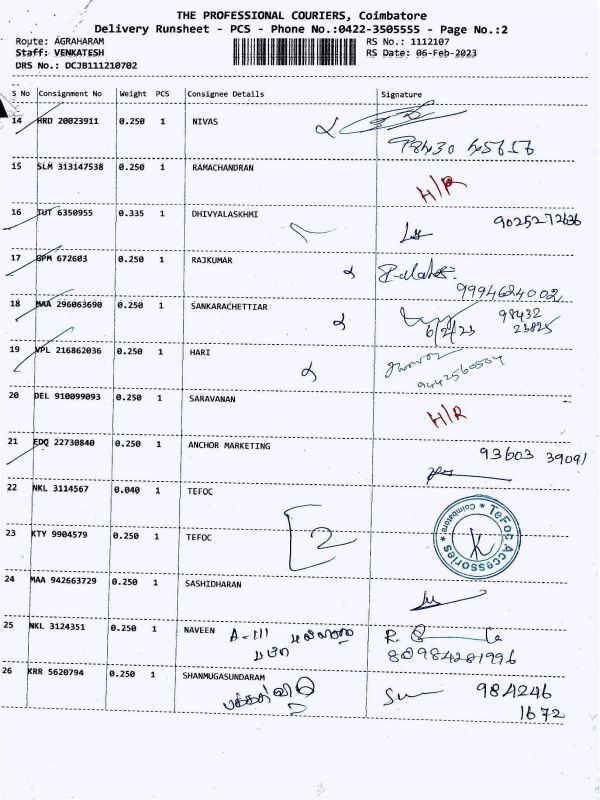 THE PROFESSIONAL COURIERS, Coimbatore
Delivery Runsheet - PCS - Phone No.:0422-3505555 - Page No.:2
Route: AGRAHARAM RS No.: 1112107
Staff: VENKATESH RS Date: 06-Feb-2023
DRS No.: DCJB111210702
S No Consignment No Weight PCS Consignee Details Signature
14 HRD 20023911 0.250 1 NIVAS
15 SLM 313147538 0.250 1 RAMACHANDRAN H/R
16 TUT 6350955 0.335 1 DHIVYALASKHMI 9025272636
17 GPM 672603 0.250 1 RAJKUMAR
9994624002
18 MAA 296063690 0.250 1 SANKARACHETTIAR 98432
6/2/23 23825
19 VPL 216862036 0.250 1 HARI
9442560504
20 DEL 910099093 0.250 1 SARAVANAN H/R
21 EDQ 22730840 0.250 1 ANCHOR MARKETING 93603 39091
22 NKL 3114567 0.040 1 TEFOC
2
TeFoc Accessories * Coimbatore *
23 KTY 9904579 0.250 1 TEFOC
24 MAA 942663729 0.250 1 SASHIDHARAN
25 NKL 3124351 0.250 1 NAVEEN A-111
26 KRR 5620794 0.250 1 SHANMUGASUNDARAM 984246
1672